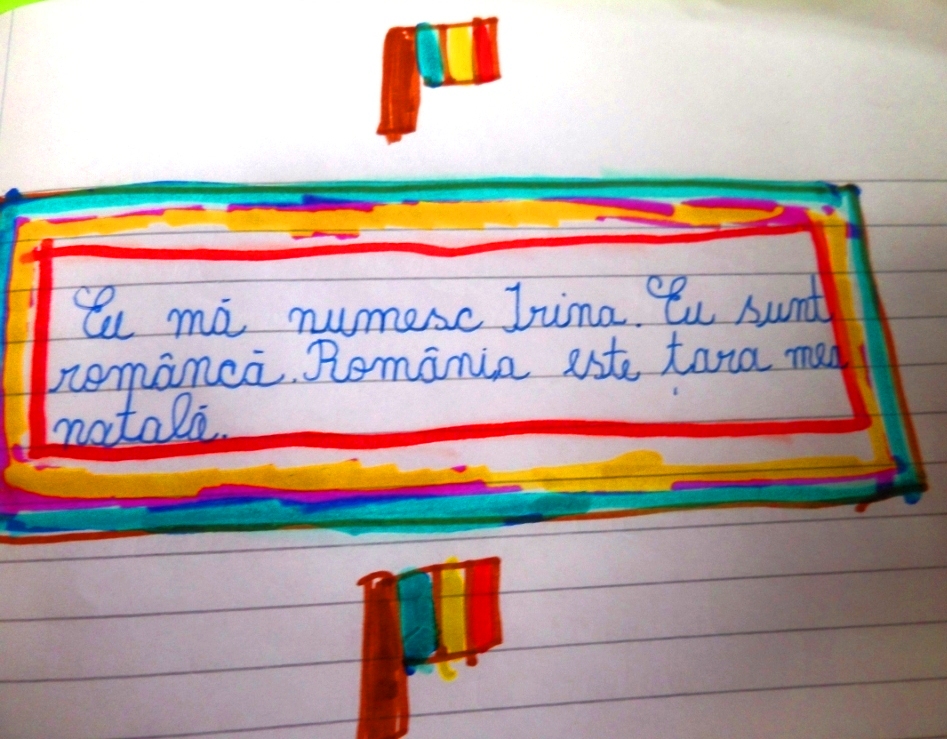 Eu mă numesc Irina. Eu sunt
româncă. România este țara mea
natală.